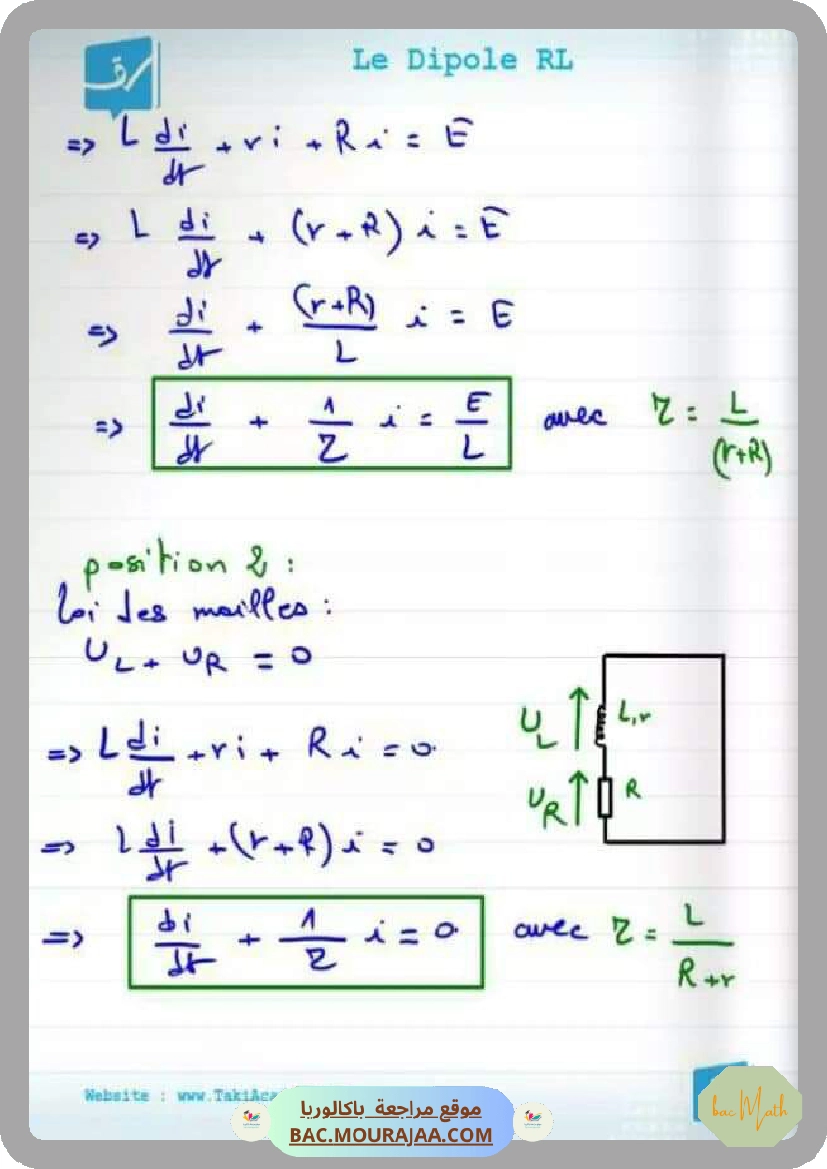 Le Dipole RL
=> L di/dt + ri + Ri = E
=> L di/dt + (r+R) i = E
=> di/dt + (r+R)/L i = E
=> di/dt + 1/τ i = E/L avec τ = L/(r+R)
position 2 :
Loi des mailles :
UL + UR = 0
=> L di/dt + ri + Ri = 0
UL L,r
UR R
=> L di/dt + (r+R) i = 0
=> di/dt + 1/τ i = 0 avec τ = L/R+r
Website : www.TakiAca
موقع مراجعة باكالوريا
BAC.MOURAJAA.COM
bac Math